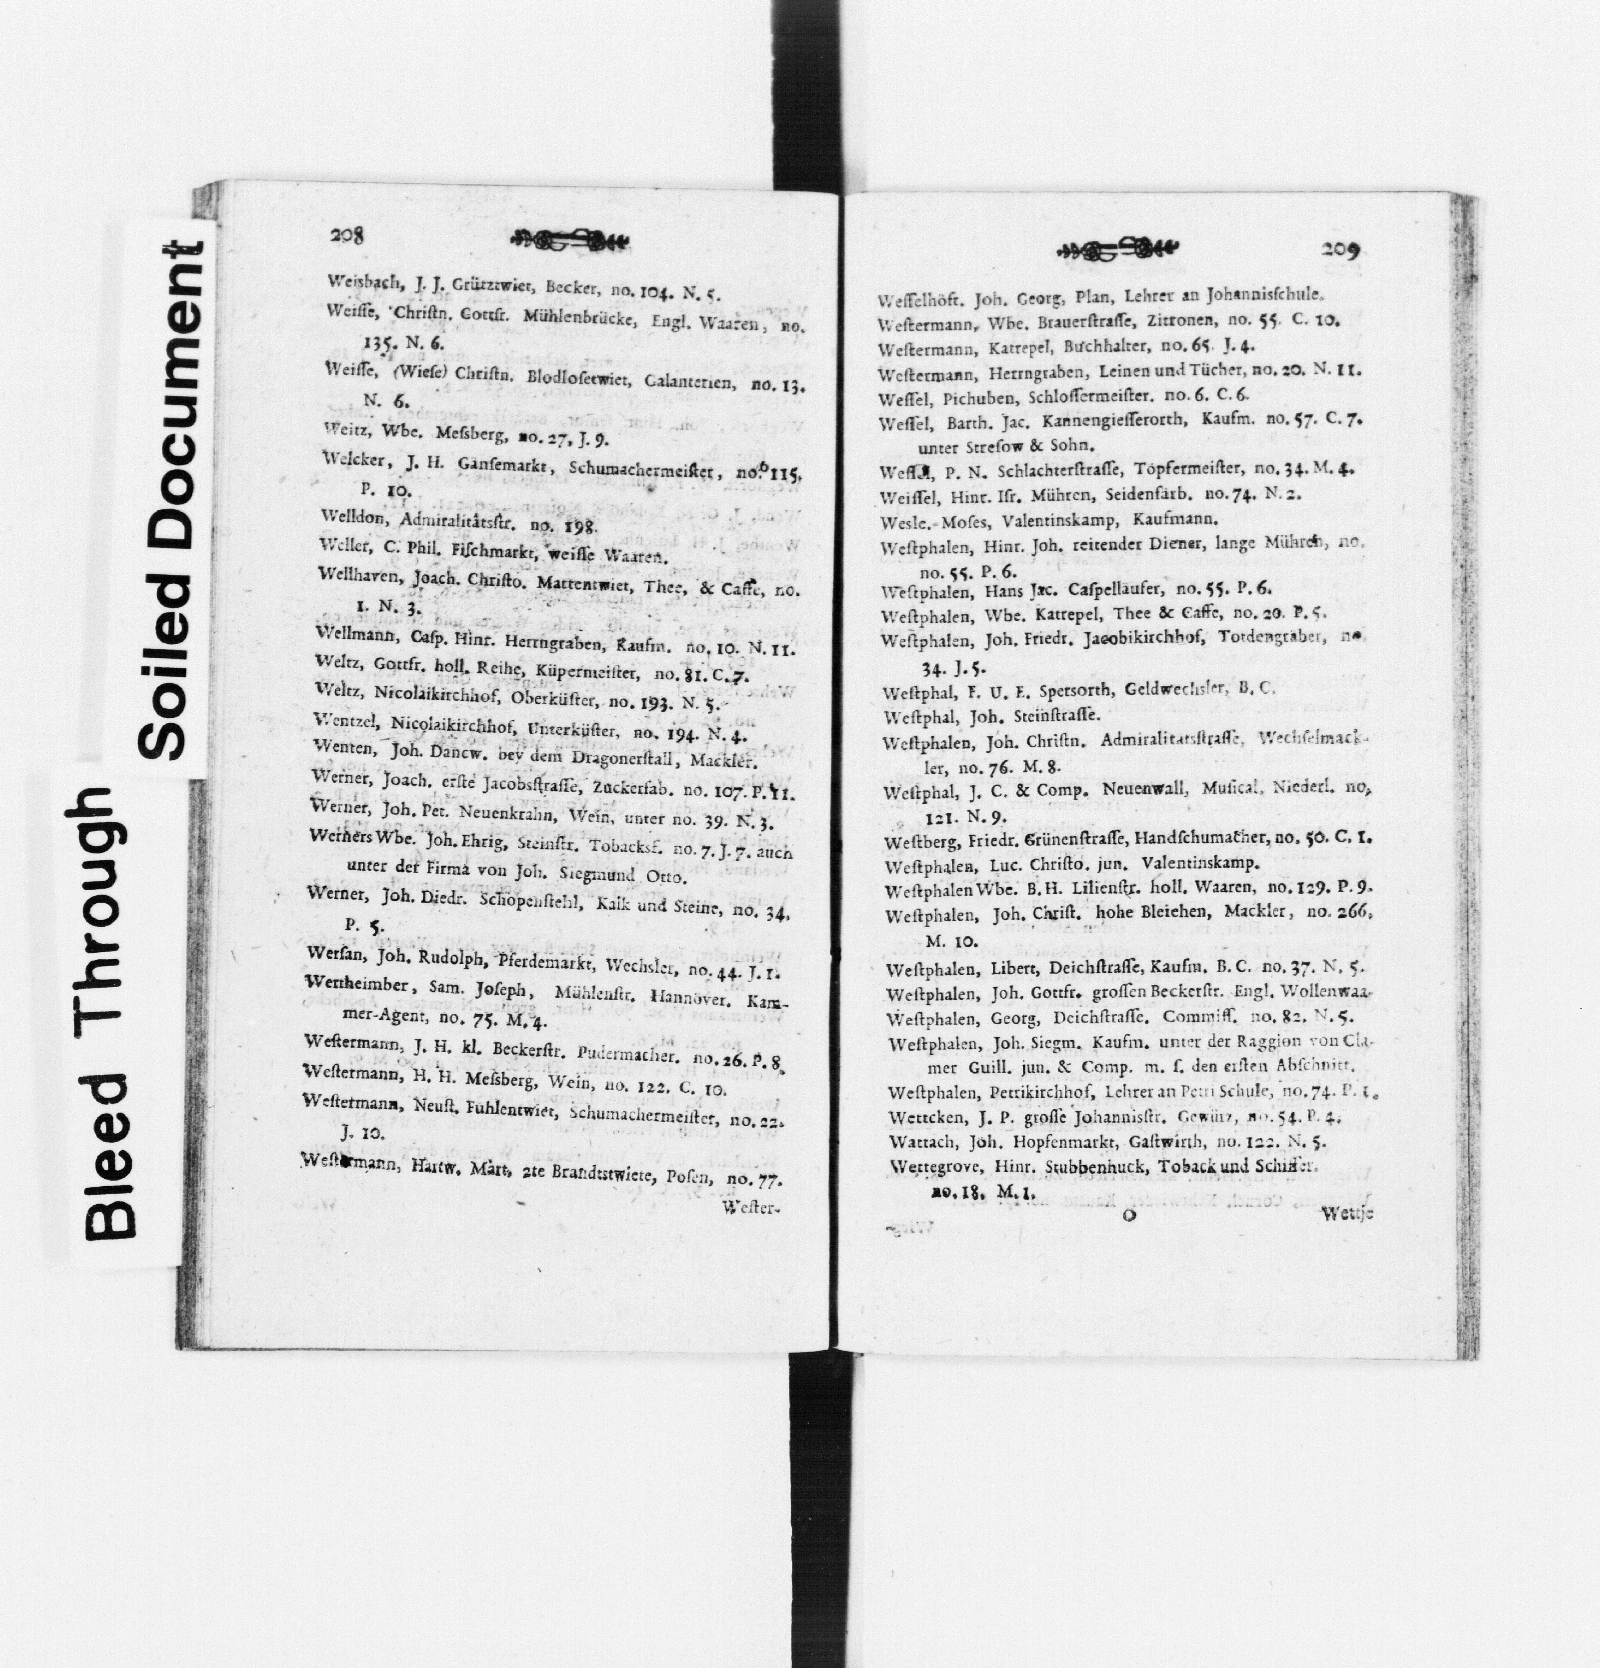 Soiled Document
Bleed Through
208
Weisbach, J. J. Grützwiet, Becker, no. 104. N. 5.
Weiſſe, Chriſtn. Gottfr. Mühlenbrücke, Engl. Waaren, no.
135. N. 6.
Weiſſe, (Wieſe) Chriſtn. Blodloſetwiet, Galanterien, no. 13.
N. 6.
Weitz, Wbe. Meſsberg, no. 27, J. 9.
Welcker, J. H. Gänſemarkt, Schumachermeiſter, no. 115.
P. 10.
Welldon, Admiralitätsſtr. no. 198.
Weller, C. Phil. Fiſchmarkt, weiſſe Waaren.
Wellhaven, Joach. Chriſto. Mattentwiet, Thee, & Caffe, no.
1. N. 3.
Wellmann, Caſp. Hinr. Herrngraben, Kaufm. no. 10. N. 11.
Weltz, Gottfr. holl. Reihe, Küpermeiſter, no. 81. C. 7.
Weltz, Nicolaikirchhof, Oberküſter, no. 193. N. 5.
Wentzel, Nicolaikirchhof, Unterküſter, no. 194. N. 4.
Wenten, Joh. Dancw. bey dem Dragonerſtall, Mackler.
Werner, Joach. erſte Jacobsſtraſſe, Zuckerfab. no. 107. P. 11.
Werner, Joh. Pet. Neuenkrahn, Wein, unter no. 39. N. 3.
Werners Wbe. Joh. Ehrig, Steinſtr. Tobacksf. no. 7. J. 7. auch
unter der Firma von Joh. Siegmund Otto.
Werner, Joh. Diedr. Schopenſtehl, Kalk und Steine, no. 34,
P. 5.
Werſan, Joh. Rudolph, Pferdemarkt, Wechsler, no. 44. J. 1.
Wertheimber, Sam. Joſeph, Mühlenſtr. Hannöver. Kam-
mer-Agent, no. 75. M. 4.
Weſtermann, J. H. kl. Beckerſtr. Pudermacher. no. 26. P. 8.
Weſtermann, H. H. Meſsberg, Wein, no. 122. C. 10.
Weſtermann, Neuſt. Fuhlentwiet, Schumachermeiſter, no. 22.
J. 10.
Weſtermann, Hartw. Mart. 2te Brandtstwiete, Poſen, no. 77.
Weſter-
209
Weſſelhöft. Joh. Georg, Plan, Lehrer an Johannisſchule.
Weſtermann, Wbe. Brauerſtraſſe, Zitronen, no. 55. C. 10.
Weſtermann, Katrepel, Buchhalter, no. 65. J. 4.
Weſtermann, Herrngraben, Leinen und Tücher, no. 20. N. 11.
Weſſel, Pichuben, Schloſſermeiſter. no. 6. C. 6.
Weſſel, Barth. Jac. Kannengieſſerorth, Kaufm. no. 57. C. 7.
unter Streſow & Sohn.
Weſſel, P. N. Schlachterſtraſſe, Töpfermeiſter, no. 34. M. 4.
Weiſſel, Hinr. Iſr. Mühren, Seidenfärb. no. 74. N. 2.
Wesle. Moſes, Valentinskamp, Kaufmann.
Weſtphalen, Hinr. Joh. reitender Diener, lange Mühren, no.
no. 55. P. 6.
Weſtphalen, Hans Jac. Caſpelläufer, no. 55. P. 6.
Weſtphalen, Wbe. Katrepel, Thee & Caffe, no. 20. P. 5.
Weſtphalen, Joh. Friedr. Jacobikirchhof, Tordengräber, no.
34. J. 5.
Weſtphal, F. U. E. Spersorth, Geldwechsler, B. C.
Weſtphal, Joh. Steinſtraſſe.
Weſtphalen, Joh. Chriſtn. Admiralitätsſtraſſe, Wechſelmack-
ler, no. 76. M. 8.
Weſtphal, J. C. & Comp. Neuenwall, Muſical. Niederl. no,
121. N. 9.
Weſtberg, Friedr. Grünenſtraſſe, Handſchumacher, no. 50. C. 1.
Weſtphalen, Luc. Chriſto. jun. Valentinskamp.
Weſtphalen Wbe. B. H. Lilienſtr. holl. Waaren, no. 129. P. 9.
Weſtphalen, Joh. Chriſt. hohe Bleichen, Mackler, no. 266,
M. 10.
Weſtphalen, Libert, Deichſtraſſe, Kaufm. B. C. no. 37. N. 5.
Weſtphalen, Joh. Gottfr. groſſen Beckerſtr. Engl. Wollenwaa-
Weſtphalen, Georg, Deichſtraſſe. Commiſſ. no. 82. N. 5.
Weſtphalen, Joh. Siegm. Kaufm. unter der Raggion von Cla-
mer Guill. jun. & Comp. m. ſ. den erſten Abſchnitt.
Weſtphalen, Petrikirchhof, Lehrer an Petri Schule, no. 74. P. 1.
Wettcken, J. P. groſſe Johannisſtr. Gewürz, no. 54. P. 4.
Wattach, Joh. Hopfenmarkt, Gaſtwirth, no. 122. N. 5.
Wettegrove, Hinr. Stubbenhuck, Toback und Schiffer.
no. 18. M. 1.
O
Wettje